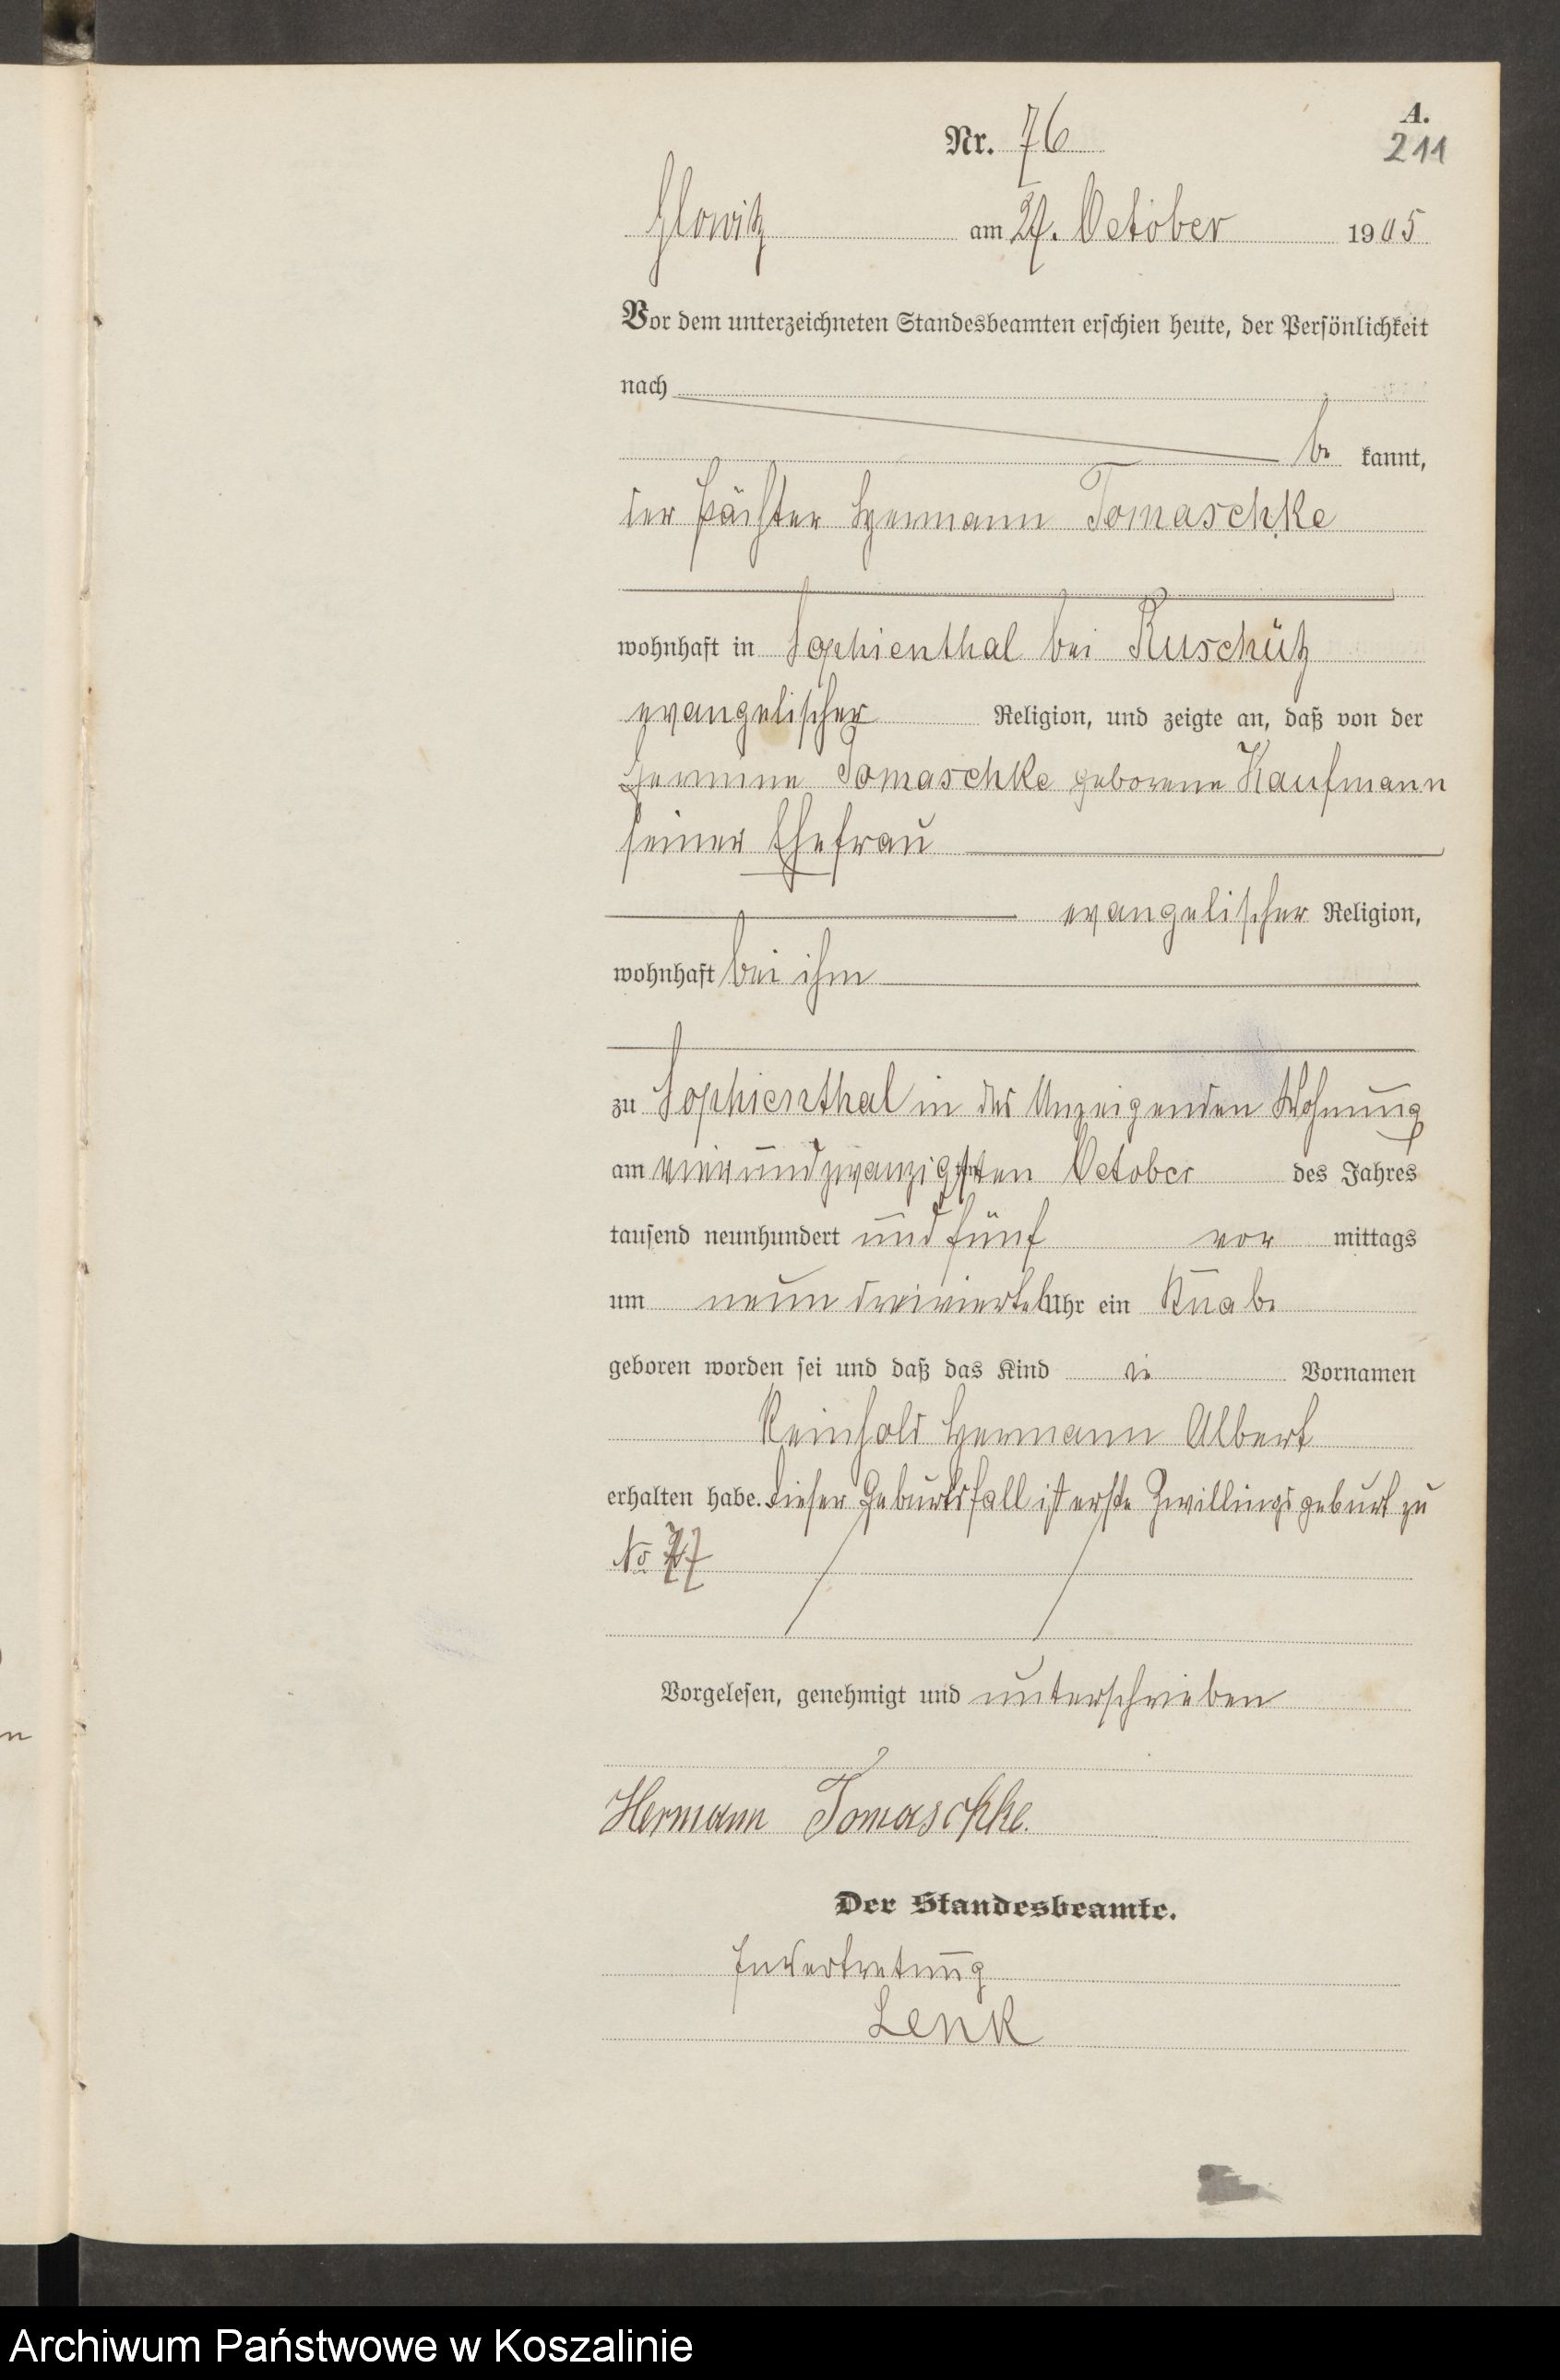 A.
Nr. 76
211
Glowitz am 27. October 1905
Vor dem unterzeichneten Standesbeamten erschien heute, der Persönlichkeit
nach
be kannt,
der Pächter Hermann Tomaschke
wohnhaft in Sophienthal bei Ruschütz
evangelischer Religion, und zeigte an, daß von der
Hermine Tomaschke geborene Kaufmann
seiner Ehefrau
evangelischer Religion,
wohnhaft bei ihm
zu Sophienthal in des Anzeigenden Wohnung
am vierundzwanzigsten October des Jahres
tausend neunhundert und fünf vor mittags
um neun dreiviertel Uhr ein Knabe
geboren worden sei und daß das Kind die Vornamen
Reinhold Hermann Albert
erhalten habe. Dieser Geburtsfall ist erste Zwillingsgeburt zu
No 77
Vorgelesen, genehmigt und unterschrieben
Hermann Tomaschke.
Der Standesbeamte.
In Vertretung
Lenk
n
Archiwum Państwowe w Koszalinie